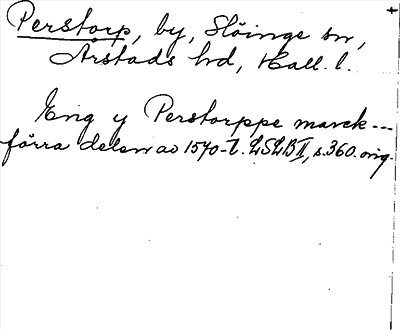 Perstorp, by, Slöinge sn,
Årstads hd, Hall. l.
Eng y Perstorppe marck---
förra delen av 1570-t. LSLB II, s. 360. orig.